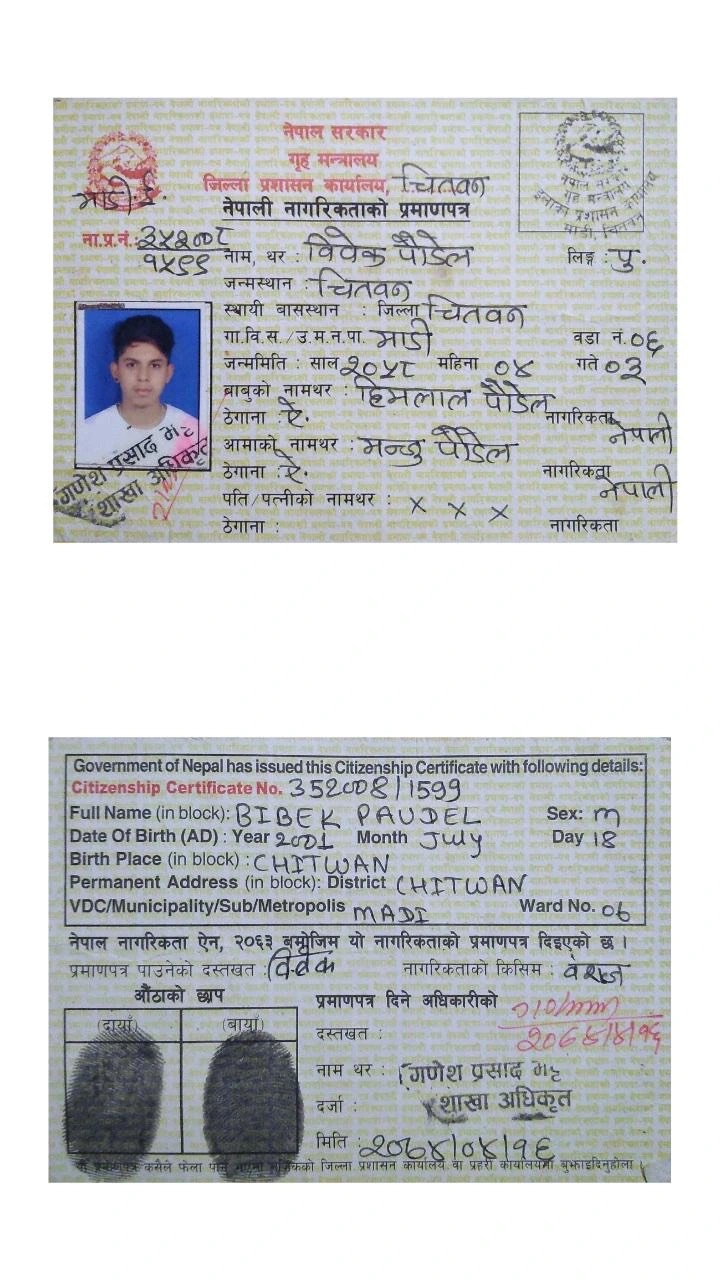 नेपाल सरकार
गृह मन्त्रालय
जिल्ला प्रशासन कार्यालय, चितवन
माडी ई.
नेपाली नागरिकताको प्रमाणपत्र
नेपाल सरकार
गृह मन्त्रालय
इलाका प्रशासन कार्यालय
माडी, चितवन
ना.प्र.नं: ३५२००८
१५९९
नाम, थर : विवेक पौडेल लिङ्ग : पु.
जन्मस्थान : चितवन
स्थायी बासस्थान : जिल्ला चितवन
गा.वि.स./उ.म.न.पा. माडी वडा नं. ०६
जन्ममिति : साल २०५८ महिना ०४ गते ०३
बाबुको नामथर : हिमलाल पौडेल
ठेगाना : ऐ. नागरिकता नेपाली
आमाको नामथर : मन्जु पौडेल
ठेगाना : ऐ. नागरिकता नेपाली
पति/पत्नीको नामथर : x x x
ठेगाना : नागरिकता
गणेश प्रसाद भट्ट
शाखा अधिकृत
Government of Nepal has issued this Citizenship Certificate with following details:
Citizenship Certificate No. 352008/1599
Full Name (in block): BIBEK PAUDEL Sex: M
Date Of Birth (AD) : Year 2001 Month July Day 18
Birth Place (in block) : CHITWAN
Permanent Address (in block): District CHITWAN
VDC/Municipality/Sub/Metropolis MADI Ward No. 06
नेपाल नागरिकता ऐन, २०६३ बमोजिम यो नागरिकताको प्रमाणपत्र दिइएको छ ।
प्रमाणपत्र पाउनेको दस्तखत : विवेक नागरिकताको किसिम : वंशज
औंठाको छाप प्रमाणपत्र दिने अधिकारीको
(दायाँ) (बायाँ)
दस्तखत :
नाम थर : गणेश प्रसाद भट्ट
दर्जा : शाखा अधिकृत
मिति : २०७४/०४/१६
यो प्रमाणपत्र कसैले फेला पारे नजिकको जिल्ला प्रशासन कार्यालय वा प्रहरी कार्यालयमा बुझाइदिनुहोला ।